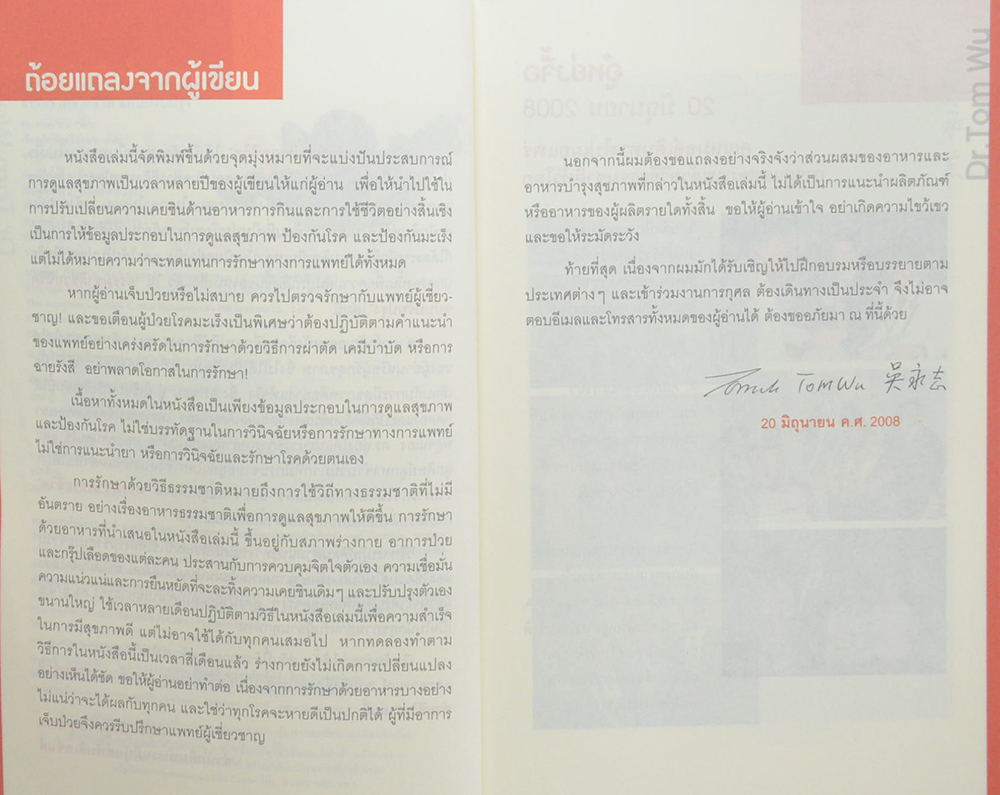 ถ้อยแถลงจากผู้เขียน
หนังสือเล่มนี้จัดพิมพ์ขึ้นด้วยจุดมุ่งหมายที่จะแบ่งปันประสบการณ์
การดูแลสุขภาพเป็นเวลาหลายปีของผู้เขียนให้แก่ผู้อ่าน เพื่อให้นำไปใช้ใน
การปรับเปลี่ยนความเคยชินด้านอาหารการกินและการใช้ชีวิตอย่างสิ้นเชิง
เป็นการให้ข้อมูลประกอบในการดูแลสุขภาพ ป้องกันโรค และป้องกันมะเร็ง
แต่ไม่ได้หมายความว่าจะทดแทนการรักษาทางการแพทย์ได้ทั้งหมด
หากผู้อ่านเจ็บป่วยหรือไม่สบาย ควรไปตรวจรักษากับแพทย์ผู้เชี่ยว-
ชาญ! และขอเตือนผู้ป่วยโรคมะเร็งเป็นพิเศษว่าต้องปฏิบัติตามคำแนะนำ
ของแพทย์อย่างเคร่งครัดในการรักษาด้วยวิธีการผ่าตัด เคมีบำบัด หรือการ
ฉายรังสี อย่าพลาดโอกาสในการรักษา!
เนื้อหาทั้งหมดในหนังสือเป็นเพียงข้อมูลประกอบในการดูแลสุขภาพ
และป้องกันโรค ไม่ใช่บรรทัดฐานในการวินิจฉัยหรือการรักษาทางการแพทย์
ไม่ใช่การแนะนำยา หรือการวินิจฉัยและรักษาโรคด้วยตนเอง
การรักษาด้วยวิธีธรรมชาติหมายถึงการใช้วิถีทางธรรมชาติที่ไม่มี
อันตราย อย่างเรื่องอาหารธรรมชาติเพื่อการดูแลสุขภาพให้ดีขึ้น การรักษา
ด้วยอาหารที่นำเสนอในหนังสือเล่มนี้ ขึ้นอยู่กับสภาพร่างกาย อาการป่วย
และกรุ๊ปเลือดของแต่ละคน ประสานกับการควบคุมจิตใจตัวเอง ความเชื่อมั่น
ความแน่วแน่และการยืนหยัดที่จะละทิ้งความเคยชินเดิมๆ และปรับปรุงตัวเอง
ขนานใหญ่ ใช้เวลาหลายเดือนปฏิบัติตามวิธีในหนังสือเล่มนี้เพื่อความสำเร็จ
ในการมีสุขภาพดี แต่ไม่อาจใช้ได้กับทุกคนเสมอไป หากทดลองทำตาม
วิธีการในหนังสือนี้เป็นเวลาสี่เดือนแล้ว ร่างกายยังไม่เกิดการเปลี่ยนแปลง
อย่างเห็นได้ชัด ขอให้ผู้อ่านอย่าทำต่อ เนื่องจากการรักษาด้วยอาหารบางอย่าง
ไม่แน่ว่าจะได้ผลกับทุกคน และใช่ว่าทุกโรคจะหายดีเป็นปกติได้ ผู้ที่มีอาการ
เจ็บป่วยจึงควรรีบปรึกษาแพทย์ผู้เชี่ยวชาญ
นอกจากนี้ผมต้องขอแถลงอย่างจริงจังว่าส่วนผสมของอาหารและ
อาหารบำรุงสุขภาพที่กล่าวในหนังสือเล่มนี้ ไม่ได้เป็นการแนะนำผลิตภัณฑ์
หรืออาหารของผู้ผลิตรายใดทั้งสิ้น ขอให้ผู้อ่านเข้าใจ อย่าเกิดความไขว้เขว
และขอให้ระมัดระวัง
ท้ายที่สุด เนื่องจากผมมักได้รับเชิญให้ไปฝึกอบรมหรือบรรยายตาม
ประเทศต่างๆ และเข้าร่วมงานการกุศล ต้องเดินทางเป็นประจำ จึงไม่อาจ
ตอบอีเมลและโทรสารทั้งหมดของผู้อ่านได้ ต้องขออภัยมา ณ ที่นี้ด้วย
Tom Wu 吴永志
20 มิถุนายน ค.ศ. 2008
Dr.Tom Wu